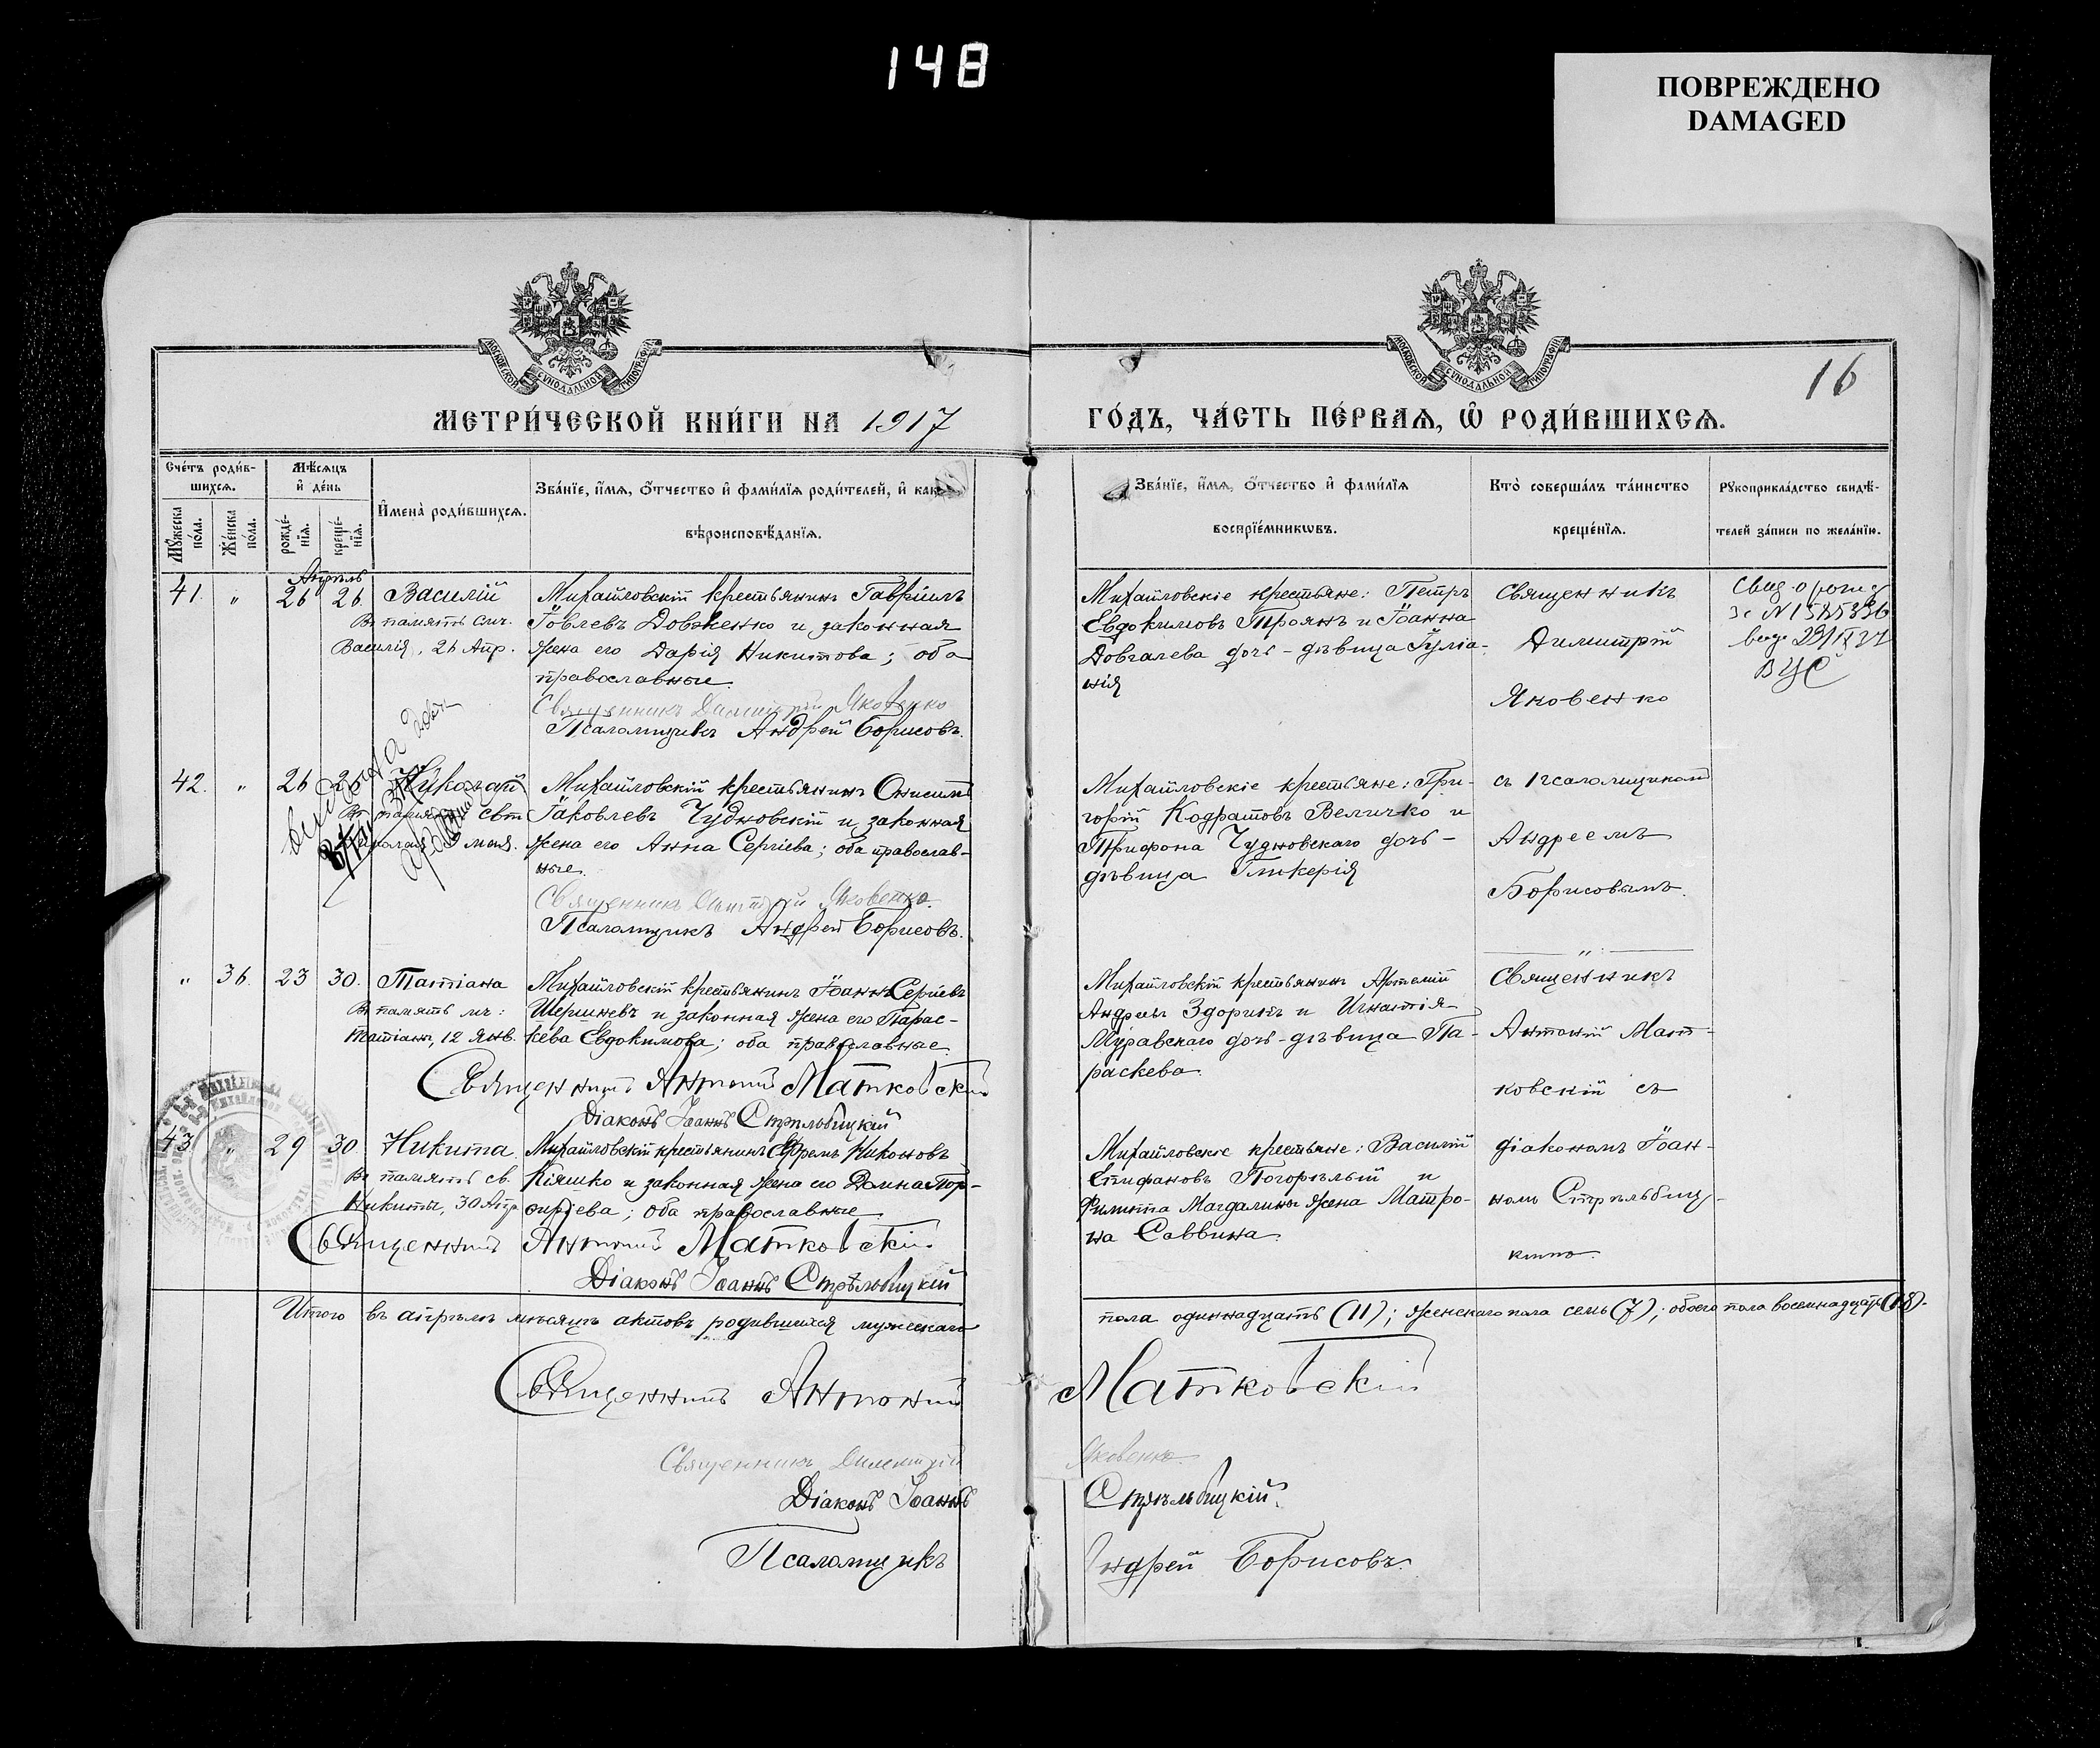 148
ПОВРЕЖДЕНО
DAMAGED
МОСКОВСКОЙ СѴНОДАЛЬНОЙ ТИПОГРАФІИ
МОСКОВСКОЙ СѴНОДАЛЬНОЙ ТИПОГРАФІИ
16
МЕТРИ́ЧЕСКОЙ КНИ́ГИ НА 1917
ГО́ДЪ, ЧА́СТЬ ПЕ́РВАѦ, Ѡ РОДИ́ВШИХСѦ.
Сче́тъ роди́в-
шихсѧ.
Мѣ́сѧцъ
и҆ де́нь
Мꙋ́жеска по́ла.
Же́нска по́ла.
рожде́-
нїѧ.
креще́-
нїѧ.
И҆мена̀ роди́вшихсѧ.
Зва́нїе, и҆́мѧ, ѻ҆́тчество и҆ фами́лїѧ роди́телей, и҆ како́
вѣроисповѣ́данїѧ.
Зва́нїе, и҆́мѧ, ѻ҆́тчество и҆ фами́лїѧ
воспрїе́мникѡвъ.
Кто̀ соверша́лъ та́инство
креще́нїѧ.
Рꙋкоприкла́дство свидѣ́-
телей за́писи по жела́нїю.
Апрѣль
41. " 26 26. Василій
Въ память свщ.
Василія, 26 Апр.
Михайловскій крестьянинъ Гавріилъ
Іовлевъ Довженко и законная
жена его Дарія Никитова; оба
православные.
Священникъ Димитрій Яковенко
Псаломщикъ Андрей Борисовъ.
Михайловскіе крестьяне: Петръ
Евдокимовъ Троянъ и Іоанна
Довгалева дочь - дѣвица Іуліа-
нія
Священникъ
Димитрій
Яковенко
Свид. о рожд.
ВЦС
42. " 26 26 Николай
Въ память свт
Николая
Михайловскій крестьянинъ Онисимъ
Іаковлевъ Чудновскій и законная
жена его Анна Сергіева; оба православ-
ные.
Священникъ Димитрій Яковенко.
Псаломщикъ Андрей Борисовъ.
Михайловскіе крестьяне: Гри-
горій Кодратовъ Величко и
Трифона Чудновскаго дочь -
дѣвица Гликерія
съ псаломщикомъ
Андреемъ
Борисовымъ.
" 36. 23 30. Татіана
Въ память мч:
Татіаны, 12 Янв.
Михайловскій крестьянинъ Іоаннъ Сергіевъ
Шершневъ и законная жена его Парас-
кева Евдокимова; оба православные.
Священникъ Антоній Матковскій
Діаконъ Іоаннъ Стрѣльбицкій
Михайловскій крестьянинъ Артемій
Андреевъ Здорикъ и Игнатія
Муравскаго дочь - дѣвица Па-
раскева.
Священникъ
Антоній Мат-
ковскій съ
43 " 29 30 Никита.
Въ память св.
Никиты, 30 Апр
Михайловскій крестьянинъ Ефремъ Никоновъ
Кіяшко и законная жена его Домна Пор-
фиріева; оба православные.
Священникъ Антоній Матковскій
Діаконъ Іоаннъ Стрѣльбицкій
Михайловскіе крестьяне: Василій
Епифановъ Погорѣлый и
Филиппа Магдалины жена Матро-
на Саввина.
діакономъ Іоан-
номъ Стрѣльбиц-
кимъ.
Итого въ апрѣлѣ мѣсяцѣ актовъ родившихся мужескаго
пола одиннадцать (11); женскаго пола семь (7); обоего пола восемнадцать (18).
Священникъ Антоній Матковскій
Священникъ Димитрій Яковенко.
Діаконъ Іоаннъ Стрѣльбицкій.
Псаломщикъ Андрей Борисовъ.